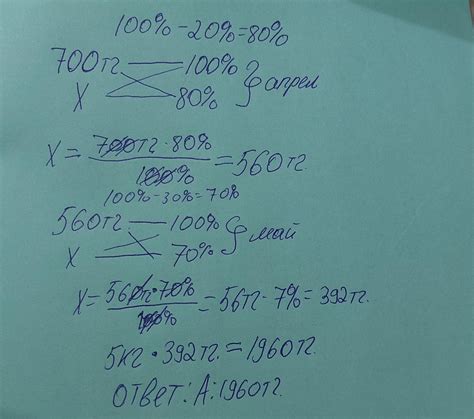 100%-20%=80%
700тг — 100%
X — 80% } апрел
X = 700тг·80% / 100% = 560тг.
100%-30%=70%
560тг — 100%
X — 70% } май
X = 560тг·70% / 100% = 56тг·7% = 392тг.
5кг·392тг.=1960тг.
ответ: А:1960тг.